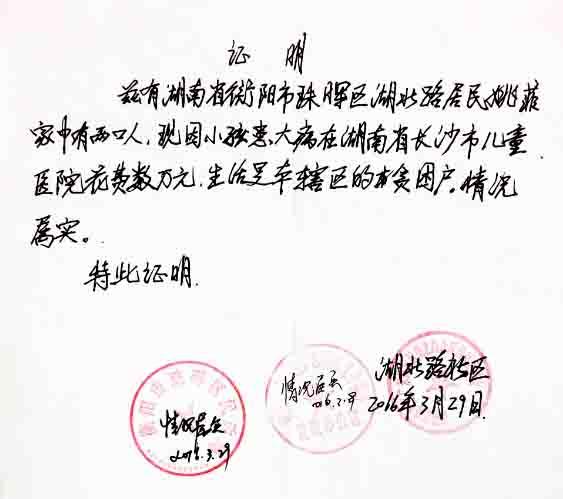 证 明
兹有湖南省衡阳市珠晖区湖北路居民姚菲
家中有两口人，现因小孩患大病在湖南省长沙市儿童
医院花费数万元，生活是本辖区的贫困户。情况
属实。
特此证明.
湖北路社区
2016年3月29日.
情况属实
2016.3.29
情况属实